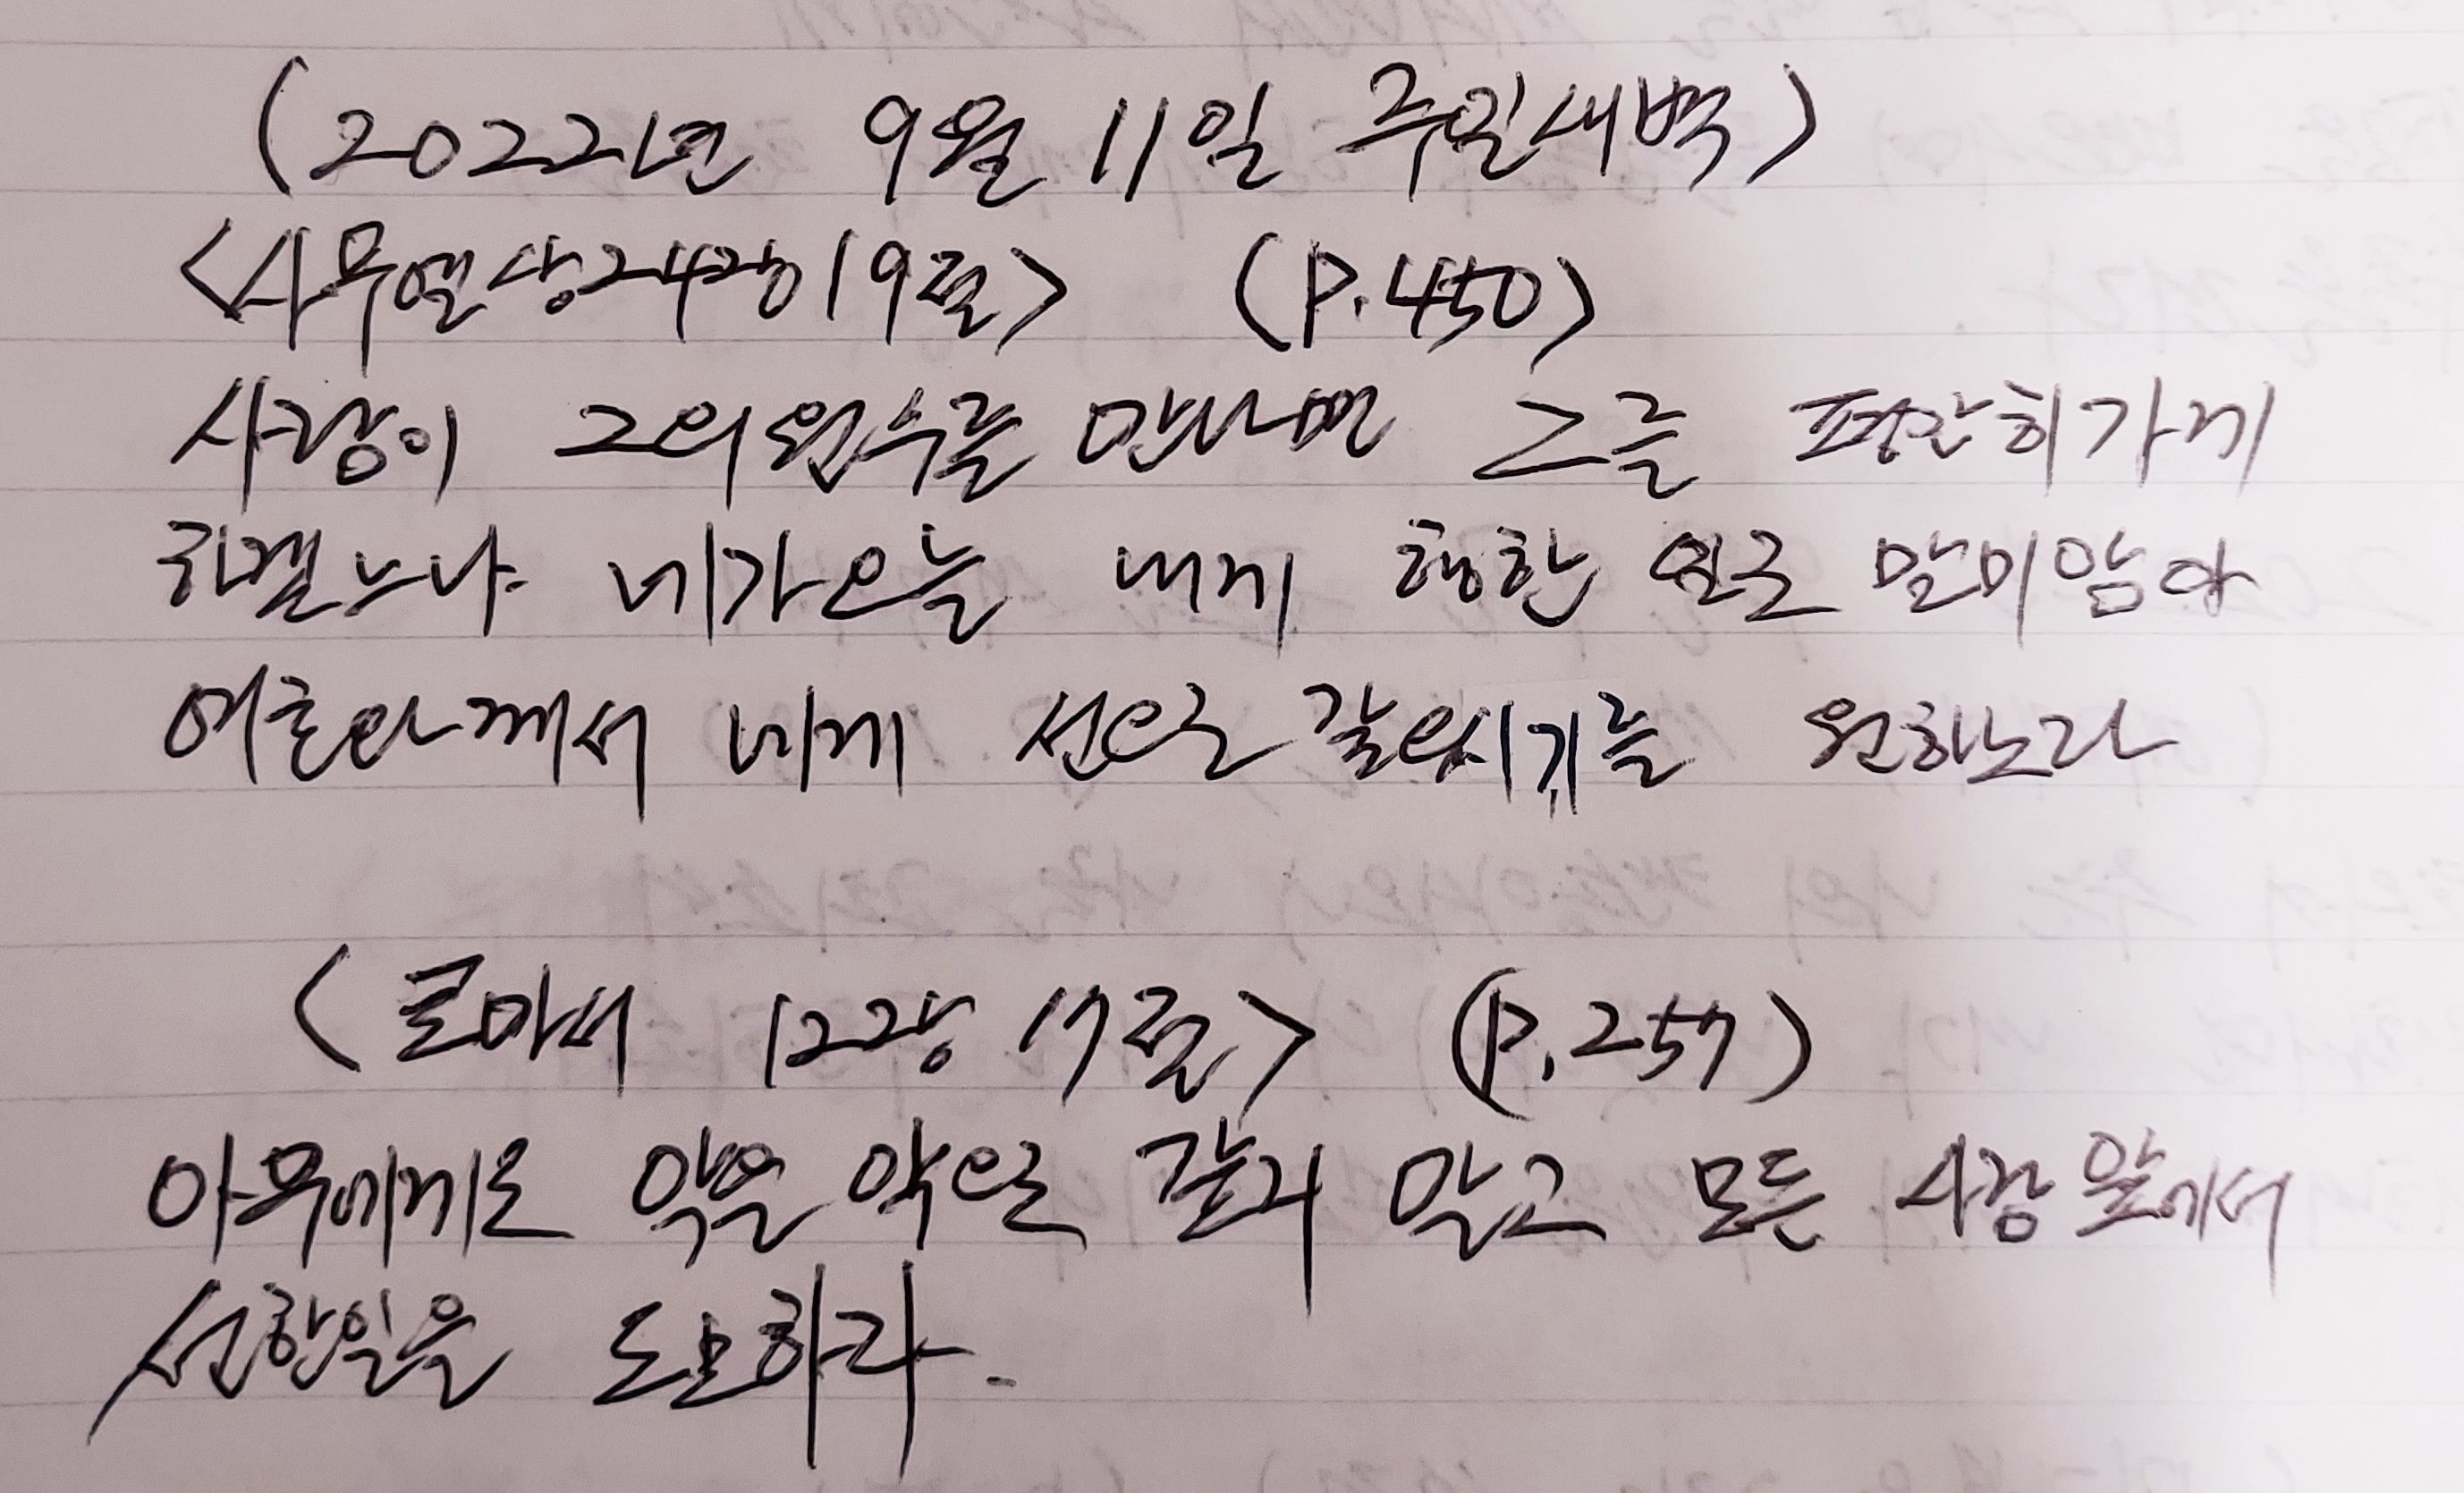 (2022년 9월 11일 주일새벽)
<사무엘상24장19절> (P.450)
사람이 그의원수를 만나면 그를 평안히가게
하겠느냐 네가오늘 내게 행한 일로 말미암아
여호와께서 네게 선으로 갚으시기를 원하노라
<로마서 12장 17절> (P.257)
아무에게도 악을 악으로 갚지 말고 모든 사람 앞에서
선한일을 도모하라.